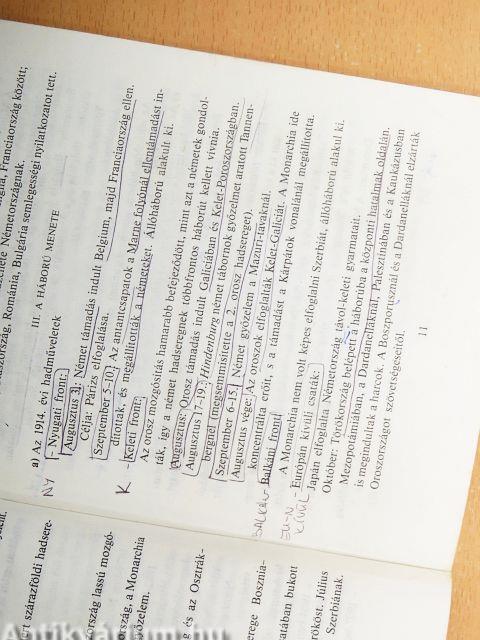 oroszország, Románia, Bulgária semlegességi nyilatkozatot tett.
III. A HÁBORÚ MENETE
a) Az 1914. évi hadműveletek
NY
- Nyugati front:
Augusztus 3.: Német támadás indult Belgium, majd Franciaország ellen.
Célja: Párizs elfoglalása.
Szeptember 5-10.: Az antantcsapatok a Marne folyónál ellentámadást in-
dítottak, és megállították a németeket. Állóháború alakult ki.
K
- Keleti front:
Az orosz mozgósítás hamarabb befejeződött, mint azt a németek gondol-
ták, így a német hadseregnek többfrontos háborút kellett vívnia.
Augusztus: Orosz támadás indult Galíciában és Kelet-Poroszországban.
Augusztus 17-19.: Hindenburg német tábornok győzelmet aratott Tannen-
bergnél (megsemmisítette a 2. orosz hadsereget).
Szeptember 6-15.: Német győzelem a Mazuri-tavaknál.
Augusztus vége: Az oroszok elfoglalták Kelet-Galíciát. A Monarchia ide
koncentrálta erőit, s a támadást a Kárpátok vonalánál megállította.
BALKÁN
- Balkáni front:
A Monarchia nem volt képes elfoglalni Szerbiát, állóháború alakul ki.
EU-N KÍVÜL
- Európán kívüli csaták:
Japán elfoglalta Németország távol-keleti gyarmatait.
Október: Törökország belépett a háborúba a központi hatalmak oldalán.
Mezopotámiában, a Dardanelláknál, Palesztinában és a Kaukázusban
is megindultak a harcok. A Boszporusznál és a Dardanelláknál elzárták
Oroszországot szövetségeseitől.
11
szárazföldi hadsere-
ország lassú mozgó-
ország, a Monarchia
győzelem.
g és az Osztrák-
erege Bosznia-
atában bukott
rököst. Július
Szerbiának.
Antikvárium.hu